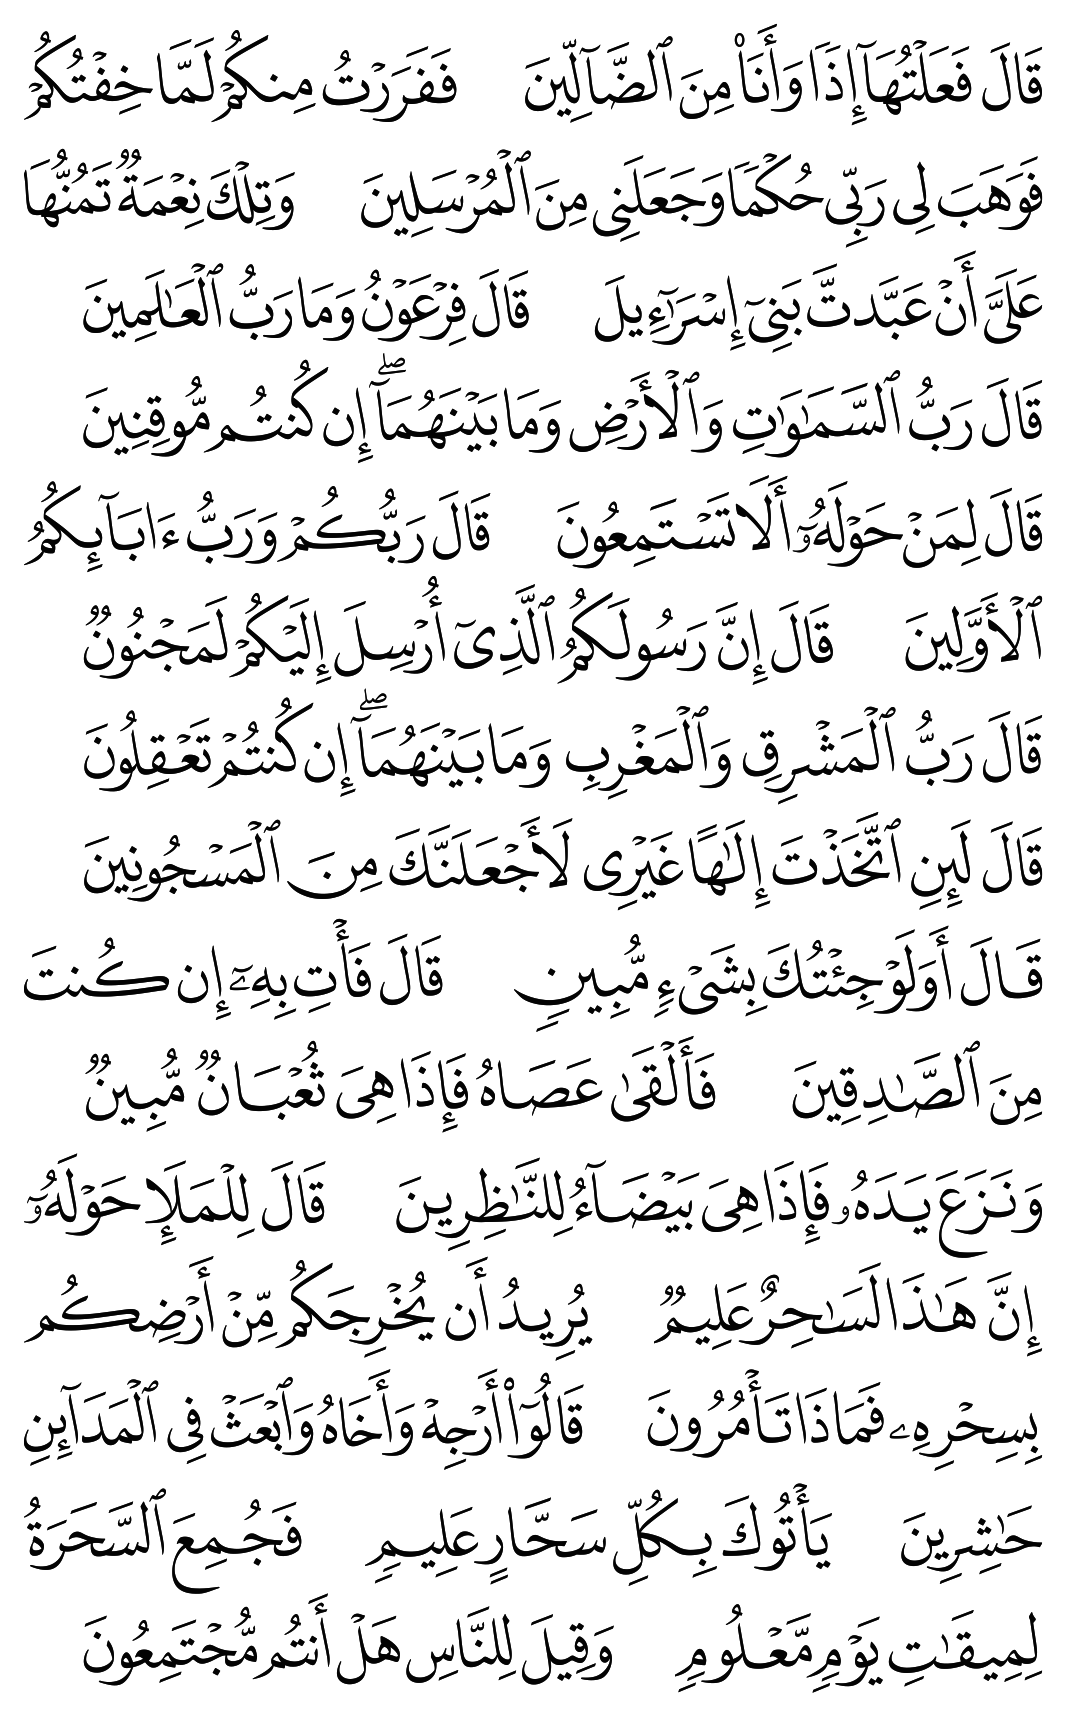 قَالَ فَعَلْتُهَآ إِذًا وَأَنَا۠ مِنَ ٱلضَّآلِّينَ فَفَرَرْتُ مِنكُمْ لَمَّا خِفْتُكُمْ
فَوَهَبَ لِى رَبِّى حُكْمًا وَجَعَلَنِى مِنَ ٱلْمُرْسَلِينَ وَتِلْكَ نِعْمَةٌ تَمُنُّهَا
عَلَىَّ أَنْ عَبَّدتَّ بَنِىٓ إِسْرَٰٓءِيلَ قَالَ فِرْعَوْنُ وَمَا رَبُّ ٱلْعَٰلَمِينَ
قَالَ رَبُّ ٱلسَّمَٰوَٰتِ وَٱلْأَرْضِ وَمَا بَيْنَهُمَآ ۖ إِن كُنتُم مُّوقِنِينَ
قَالَ لِمَنْ حَوْلَهُۥٓ أَلَا تَسْتَمِعُونَ قَالَ رَبُّكُمْ وَرَبُّ ءَابَآئِكُمُ
ٱلْأَوَّلِينَ قَالَ إِنَّ رَسُولَكُمُ ٱلَّذِىٓ أُرْسِلَ إِلَيْكُمْ لَمَجْنُونٌ
قَالَ رَبُّ ٱلْمَشْرِقِ وَٱلْمَغْرِبِ وَمَا بَيْنَهُمَآ ۖ إِن كُنتُمْ تَعْقِلُونَ
قَالَ لَئِنِ ٱتَّخَذْتَ إِلَٰهًا غَيْرِى لَأَجْعَلَنَّكَ مِنَ ٱلْمَسْجُونِينَ
قَالَ أَوَلَوْ جِئْتُكَ بِشَىْءٍ مُّبِينٍ قَالَ فَأْتِ بِهِۦٓ إِن كُنتَ
مِنَ ٱلصَّٰدِقِينَ فَأَلْقَىٰ عَصَاهُ فَإِذَا هِىَ ثُعْبَانٌ مُّبِينٌ
وَنَزَعَ يَدَهُۥ فَإِذَا هِىَ بَيْضَآءُ لِلنَّٰظِرِينَ قَالَ لِلْمَلَإِ حَوْلَهُۥٓ
إِنَّ هَٰذَا لَسَٰحِرٌ عَلِيمٌ يُرِيدُ أَن يُخْرِجَكُم مِّنْ أَرْضِكُم
بِسِحْرِهِۦ فَمَاذَا تَأْمُرُونَ قَالُوٓا۟ أَرْجِهْ وَأَخَاهُ وَٱبْعَثْ فِى ٱلْمَدَآئِنِ
حَٰشِرِينَ يَأْتُوكَ بِكُلِّ سَحَّارٍ عَلِيمٍ فَجُمِعَ ٱلسَّحَرَةُ
لِمِيقَٰتِ يَوْمٍ مَّعْلُومٍ وَقِيلَ لِلنَّاسِ هَلْ أَنتُم مُّجْتَمِعُونَ